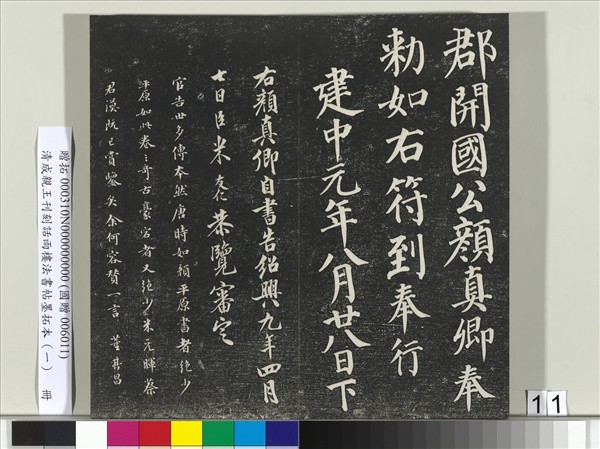 郡開國公顏真卿奉
勑如右符到奉行
建中元年八月廿八日下
右顏真卿自書告紹興九年四月
七日臣米友仁恭覽審定
官告世多傳本然唐時如顏平原書者絕少
平原如此卷之奇古豪宕者又絕少米元暉蔡
君謨既已賞鑒矣余何容贅一言 董其昌
贈拓 000310N000000000 (國贈 006011)
清成親王刊刻詒雨樓法書帖墨拓本（一） 冊
11